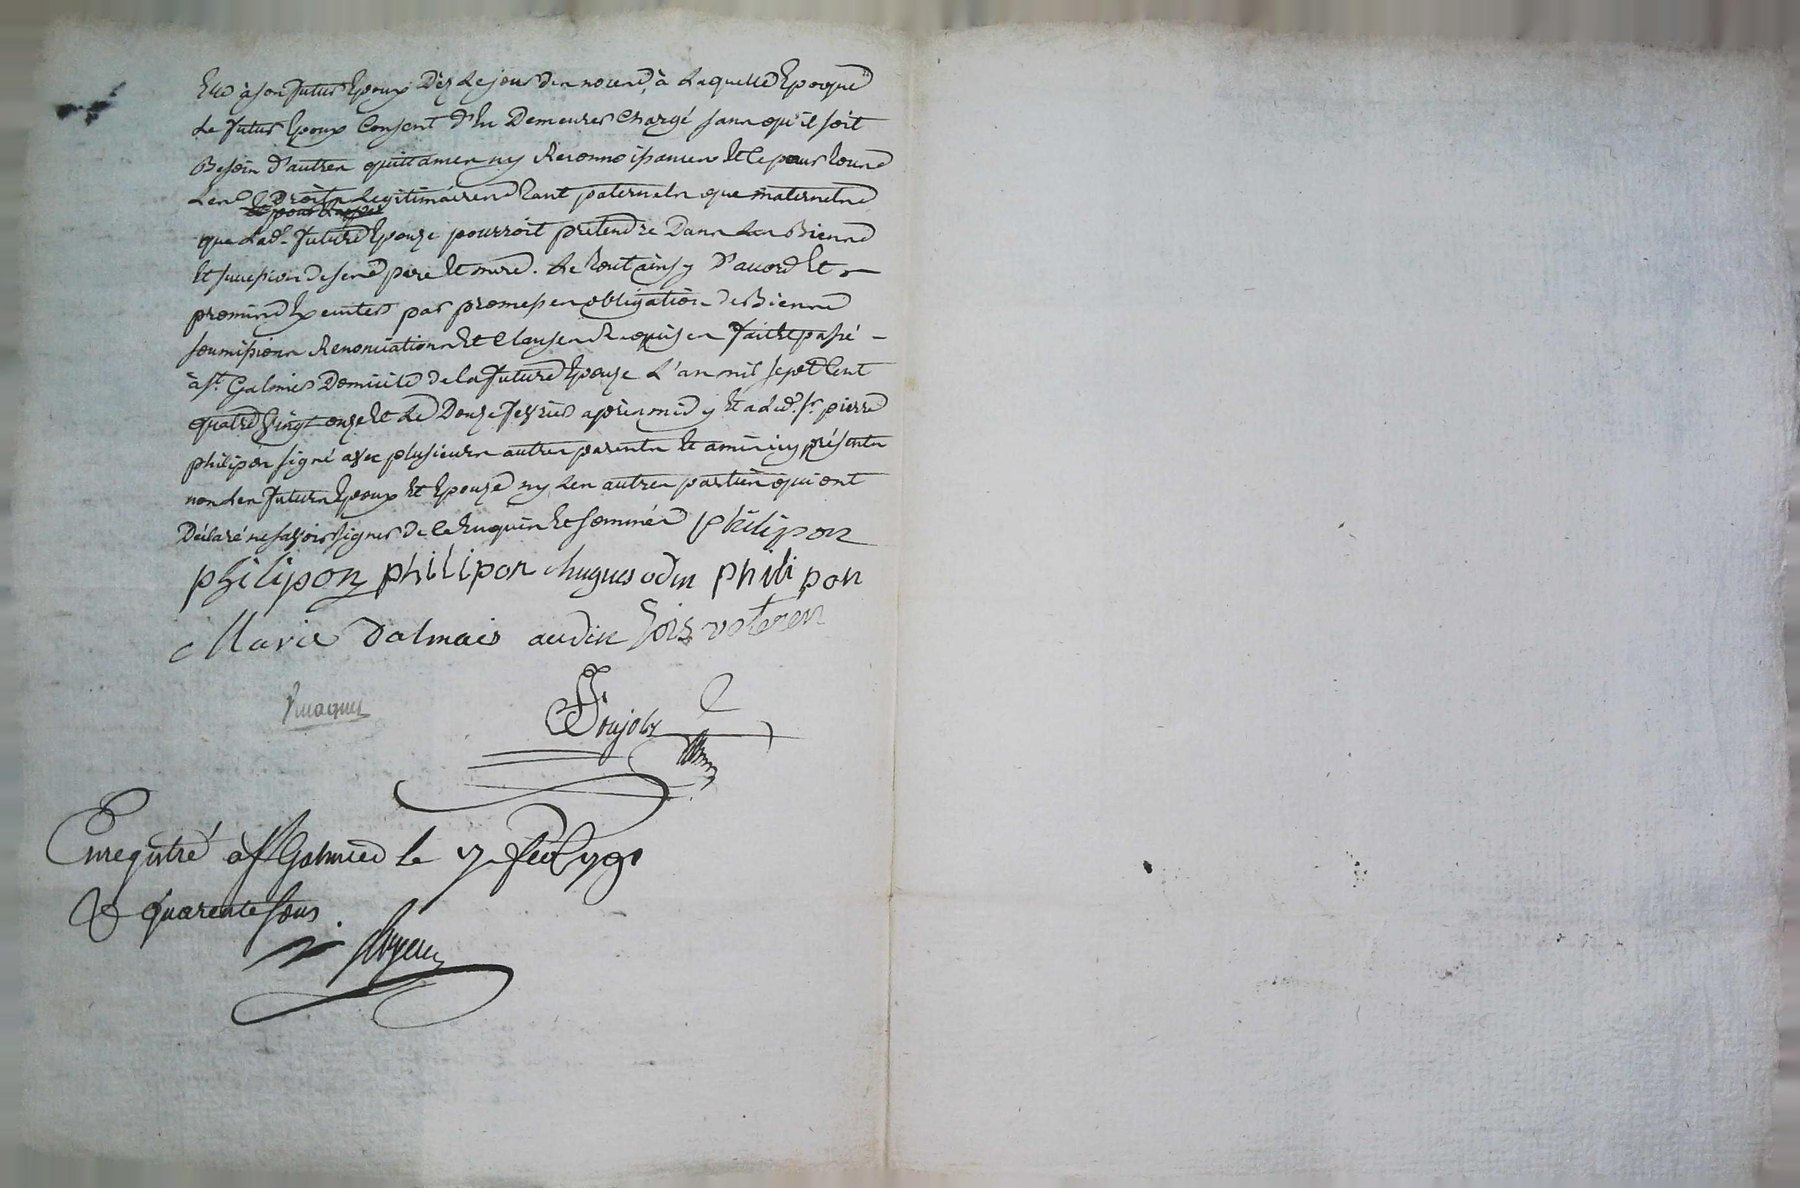 Elle à son futur Epoux Dèz Le jour des noces, à Laquelle Epoque
Le futur Epoux Consent d'En Demeurer Chargé sans qu'il soit
Besoin d'autres quittances ny Reconnoissances Et ce pour tous
Les Droits Legitimaires tant paternels que maternels
que Lad. future Epouze pourroit pretendre Dans Les Biens
Et succession de ses père Et mere. Le tout ainsy D'accord Et
promis Executer par promesses obligation de Biens
soumissions Renonciations Et Clauses Requises fait Et passé
à St Galmier Domicile de la future Epouze L'an mil sept Cent
quatre vingt onze Et Le Douze fevrier après midy Et a Led. Sr. pierre
philipon signé avec plusieurs autres parents Et amis icy présents
non Les futurs Epoux Et Epouze ny Les autres parties qui ont
Déclaré ne savoir signer de ce Enquis Et sommés philipon
philipon philipon hugues odin philipon
Marie Dalmais audin
Enregistré à St Galmier le 17 fev 1791
quarente sous